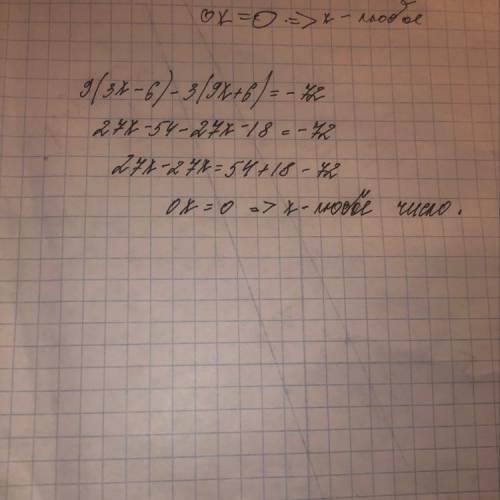 0x=0 => x - любое
9(3x-6)-3(9x+6)=-72
27x-54-27x-18=-72
27x-27x=54+18-72
0x=0 => x-любое число.